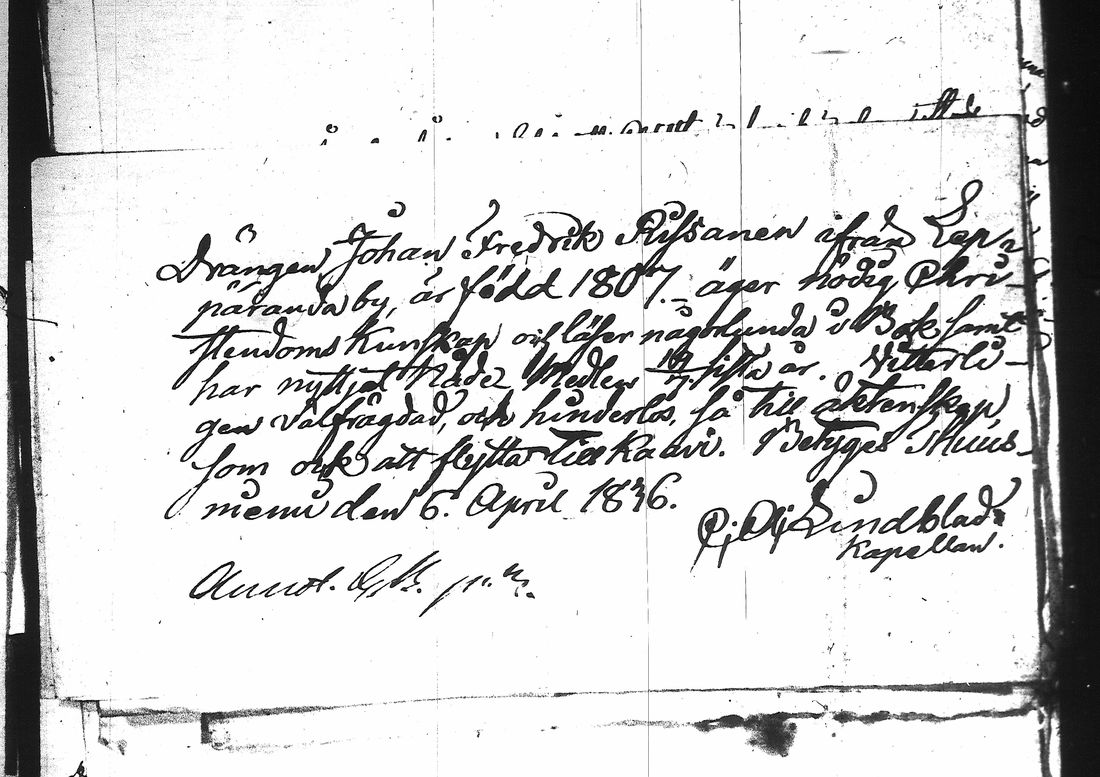 Drängen Johan Fredrik Rissanen ifrån Lep-
päranda by, är född 1807. äger nödig Chri-
stendoms Kunskap och läser någorlunda i Bok samt
har nyttjat Nåde Medlen sista år. Vitterli-
gen välfrägdad, och hinderlös, så till äktenskap
som ock att flytta till Kaavi. Betyges Thuus-
niemi den 6. April 1836.
Lindblad
Kapellan.
Annot.